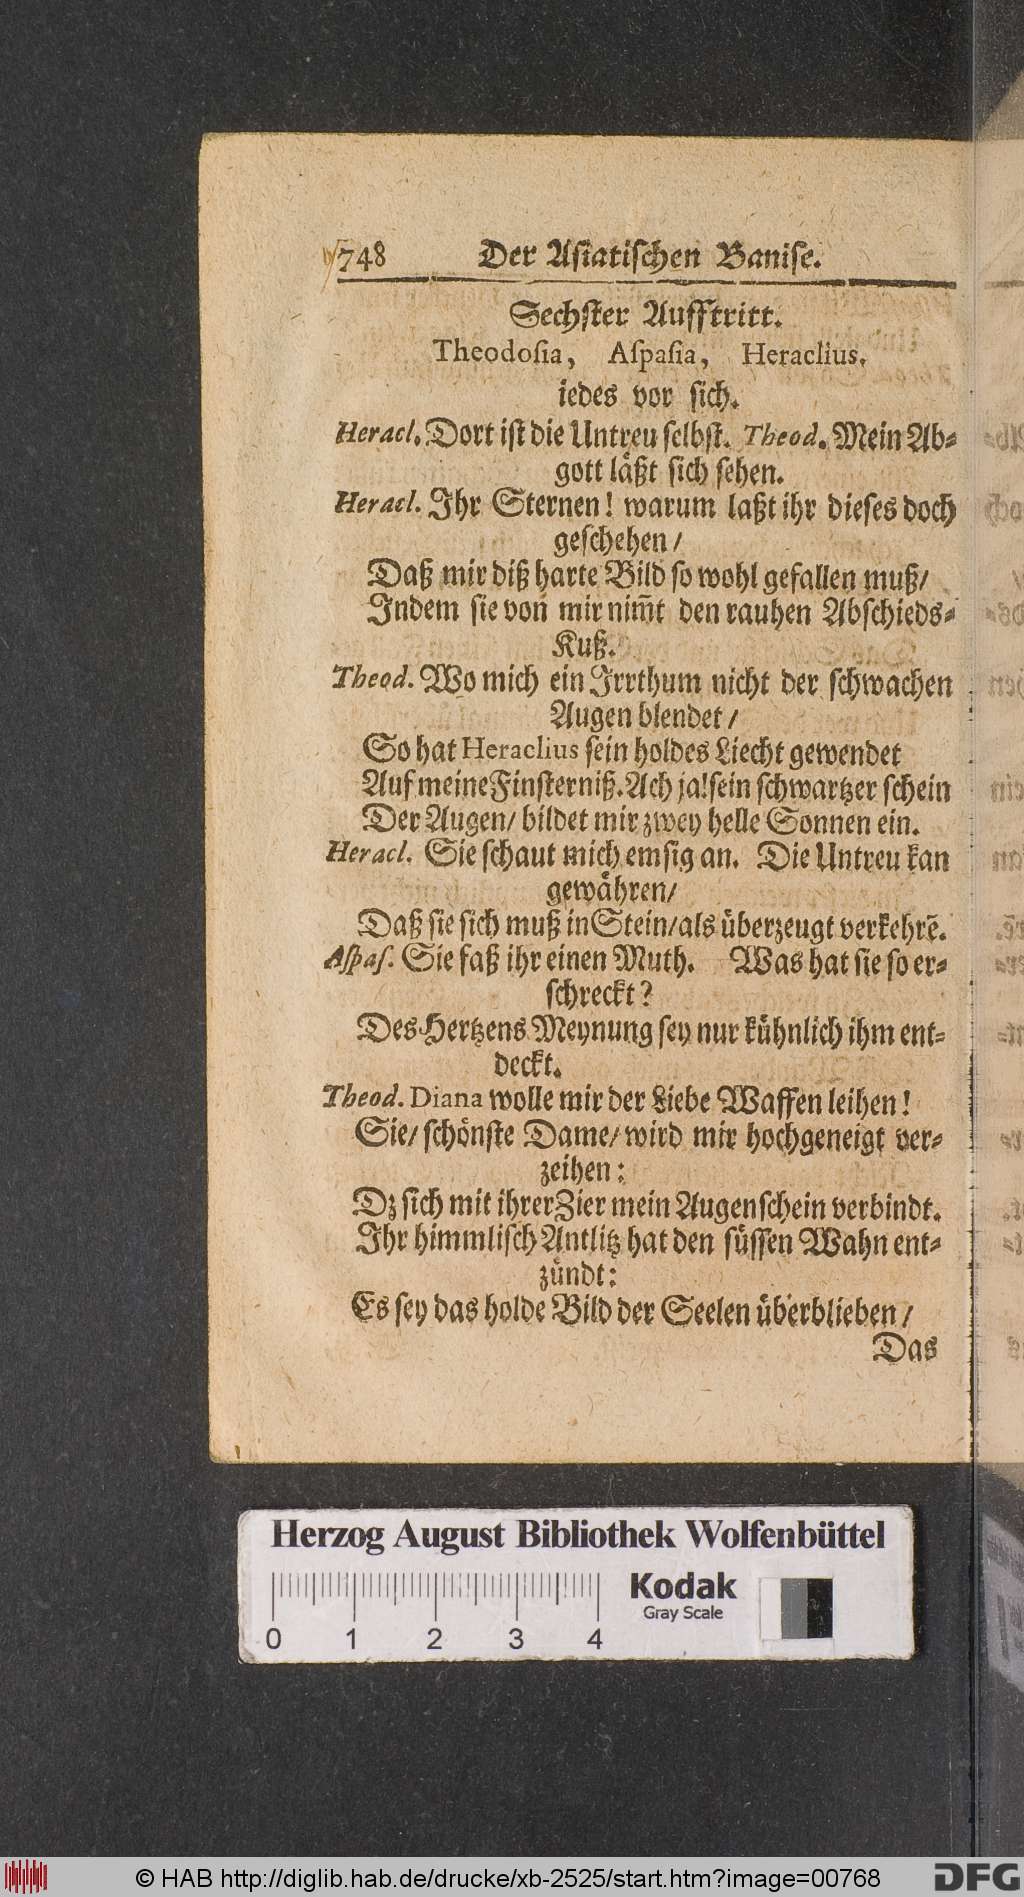 748 Der Asiatischen Banise.
Sechster Aufftritt.
Theodosia, Aspasia, Heraclius,
iedes vor sich.
Heracl. Dort ist die Untreu selbst. Theod. Mein Ab-
gott läßt sich sehen.
Heracl. Ihr Sternen! warum laßt ihr dieses doch
geschehen /
Daß mir diß harte Bild so wohl gefallen muß/
Indem sie von mir nim̄t den rauhen Abschieds-
Kuß.
Theod. Wo mich ein Irrthum nicht der schwachen
Augen blendet /
So hat Heraclius sein holdes Liecht gewendet
Auf meine Finsterniß. Ach ja! sein schwartzer schein
Der Augen/ bildet mir zwey helle Sonnen ein.
Heracl. Sie schaut mich emsig an. Die Untreu kan
gewähren/
Daß sie sich muß in Stein/ als überzeugt verkehrē.
Aspas. Sie faß ihr einen Muth. Was hat sie so er-
schreckt?
Des Hertzens Meynung sey nur kühnlich ihm ent-
deckt.
Theod. Diana wolle mir der Liebe Waffen leihen!
Sie/ schönste Dame/ wird mir hochgeneigt ver-
zeihen:
Dz sich mit ihrer Zier mein Augenschein verbindt.
Ihr himmlisch Antlitz hat den süssen Wahn ent-
zündt:
Es sey das holde Bild der Seelen überblieben /
Das
Herzog August Bibliothek Wolfenbüttel
Kodak
Gray Scale
0 1 2 3 4
© HAB http://diglib.hab.de/drucke/xb-2525/start.htm?image=00768
DFG